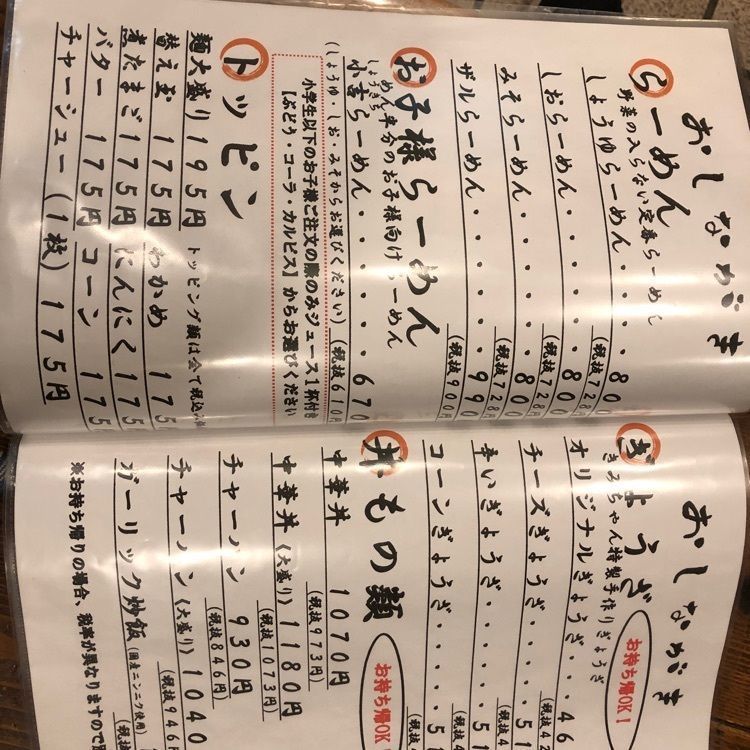 おしながき
らーめん
野菜の入らない定番らーめん
しょうゆらーめん・・・・・・・80
(税抜728
しおらーめん・・・・・・・80
(税抜728
みそらーめん・・・・・・・80
(税抜728円
ザルらーめん・・・・・・・990
(税抜900円
お子様らーめん
めん半分のお子様向けらーめん
小吉らーめん・・・・・・670
(しょうゆ・しお・みそからお選びください) (税抜610円
小学生以下のお子様ご注文の際のみジュース1杯付き
【ぶどう・コーラ・カルピス】からお選びください
トッピン
トッピング類は全て税込
麺大盛り195円 わかめ 175
替え玉 175円 にんにく175
煮たまご175円 コーン 175
バター 175円
チャーシュー(1枚)175円
おしながき
ぎょうざ
お持ち帰OK!
きみちゃん特製手作りぎょうざ
オリジナルぎょうざ・・・・46
(税抜4
チーズぎょうざ・・・・・51
(税抜4
辛いぎょうざ・・・・・・51
(税抜4
コーンぎょうざ・・・・・51
(税抜4
丼もの類
お持ち帰OK
中華丼 1070円
(税抜973円)
中華丼(大盛り)1180円
(税抜1073円)
チャーハン 930円
(税抜846円)
チャーハン(大盛り)1040
(税抜946円
ガーリック炒飯(国産ニンニク使用)
※お持ち帰りの場合、税率が異なりますので